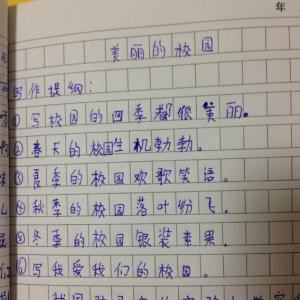 年
美丽的校园
写作提纲:
①写校园的四季都很美丽。
②春天的校园生机勃勃。
③夏季的校园欢歌笑语。
④秋季的校园落叶纷飞。
⑤冬季的校园银装素果。
⑥写我爱我们的校园。